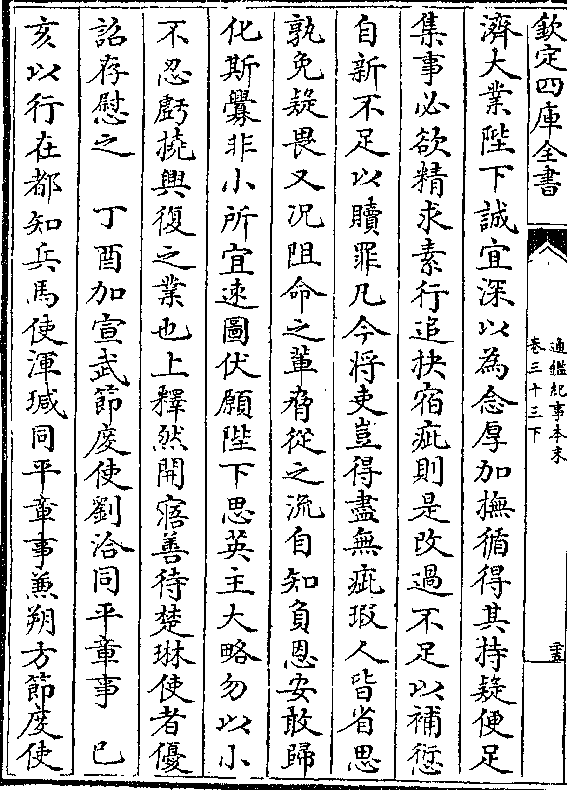 欽定四庫全書
通鑑紀事本末
卷三十三下
濟大業陛下誠宜深以為念厚加撫循得其持疑便足
集事必欲精求素行追抉宿疵則是改過不足以補愆
自新不足以贖罪凡今將吏豈得盡無疵瑕人皆省思
孰免疑畏又況阻命之輩脅從之流自知負恩安敢歸
化斯釁非小所宜速圖伏願陛下思英主大略勿以小
不忍虧撓興復之業也上釋然開寤善待楚琳使者優
詔存慰之　丁酉加宣武節度使劉洽同平章事　已
亥以行在都知兵馬使渾瑊同平章事兼朔方節度使